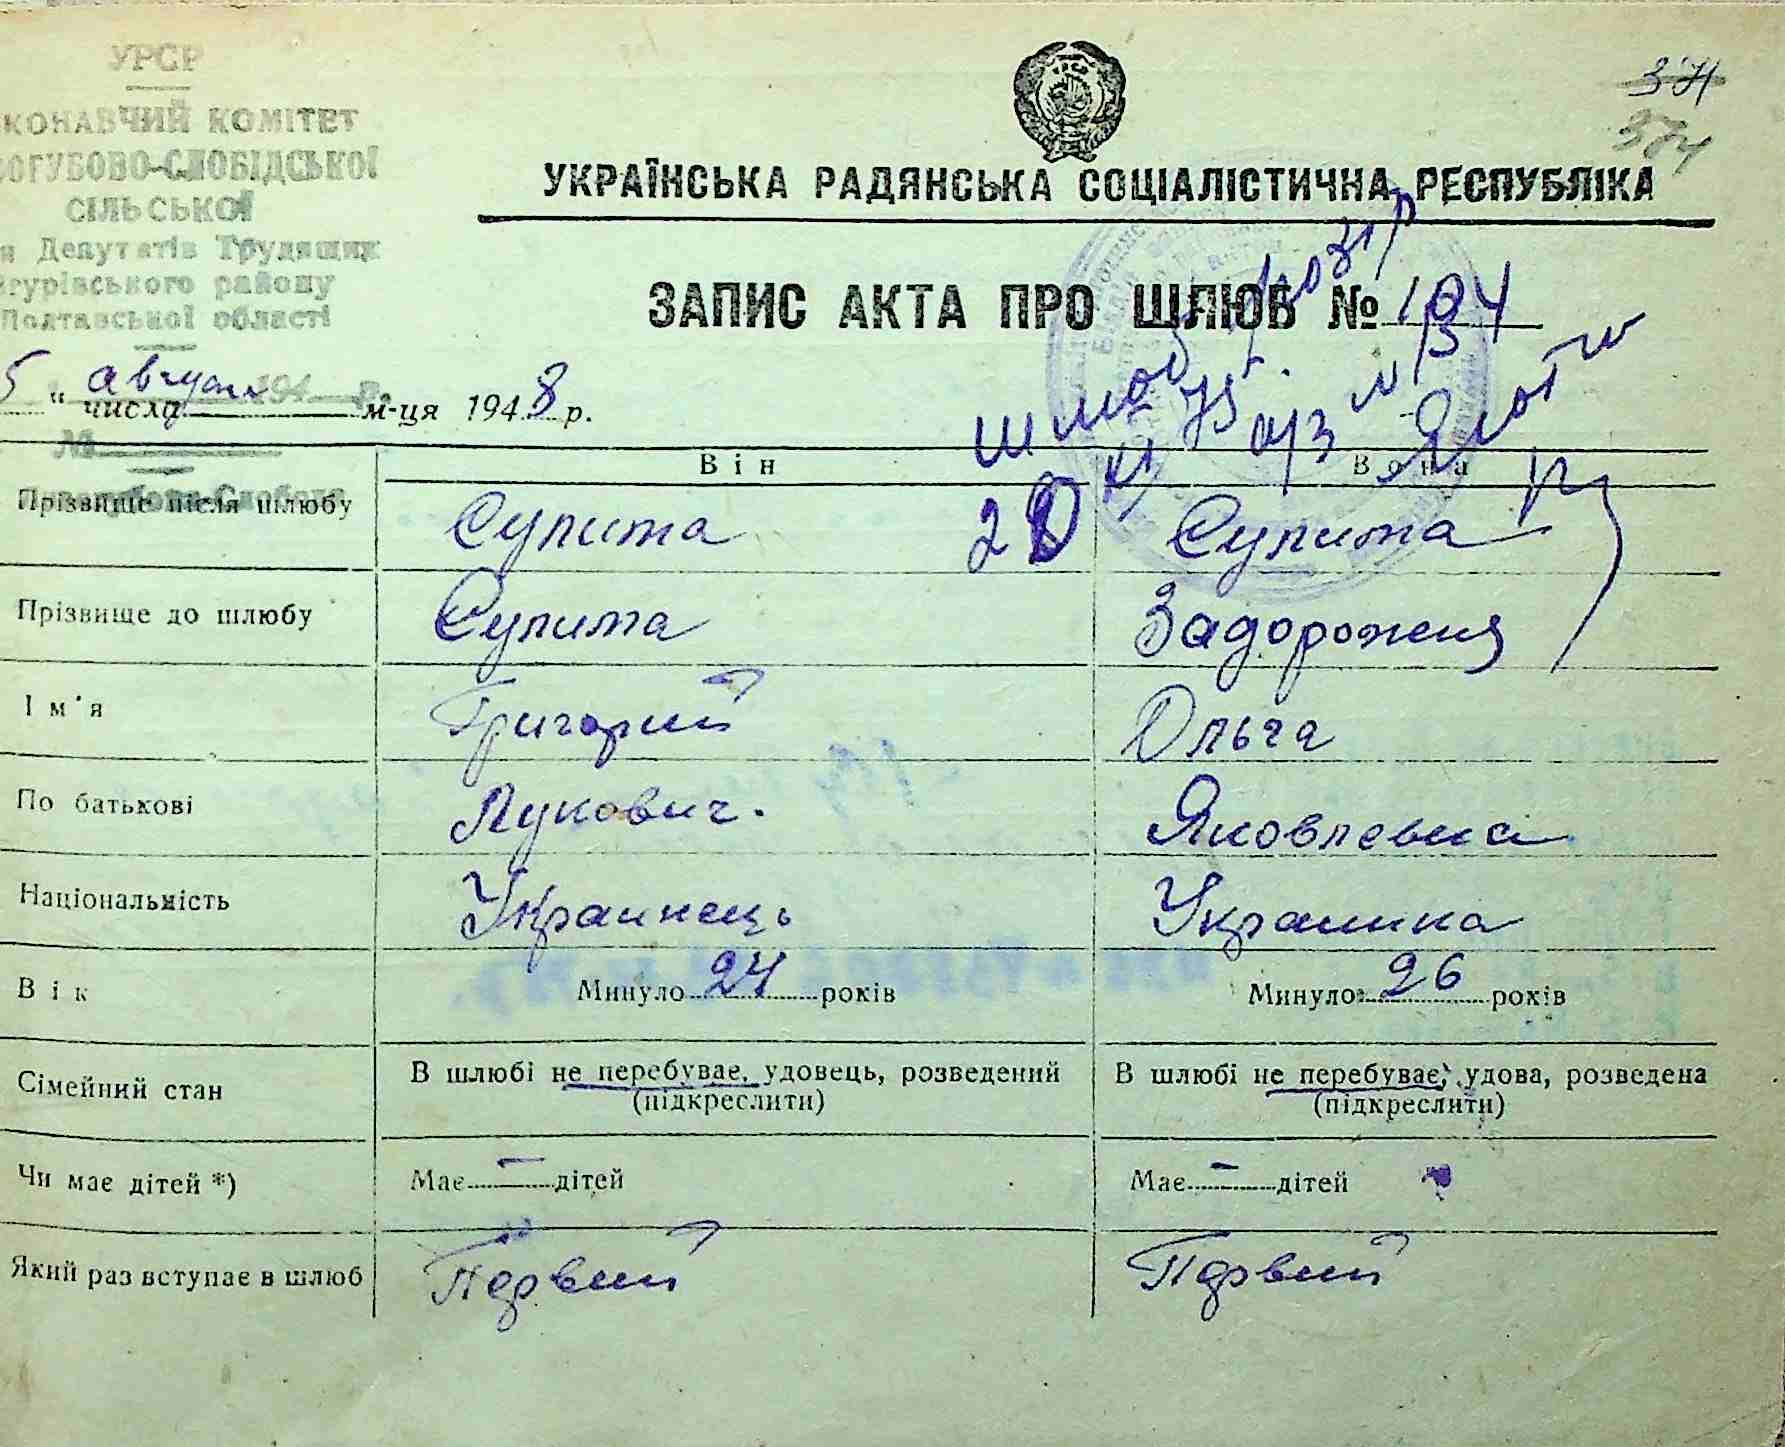 УРСР
КОНАВЧИЙ КОМІТЕТ
ОГУБОВО-СЛОБІДСЬКОЇ
СІЛЬСЬКОЇ
и Депутатів Трудящих
гурівського району
Полтавської області
374
374
УКРАЇНСЬКА РАДЯНСЬКА СОЦІАЛІСТИЧНА РЕСПУБЛІКА
ЗАПИС АКТА ПРО ШЛЮБ №
5 " августа числа м-ця 1948 р.
№
Він Вона
Прізвище після шлюбу Супита Супита
Прізвище до шлюбу Супита Задорожня
Ім'я Григорий Ольга
По батькові Лукович. Яковлевна
Національність Украинець Украинка
Вік Минуло 24 років Минуло 26 років
Сімейний стан В шлюбі не перебуває, удовець, розведений В шлюбі не перебуває, удова, розведена
(підкреслити) (підкреслити)
Чи має дітей *) Має — дітей Має — дітей
Який раз вступає в шлюб Первий Первий